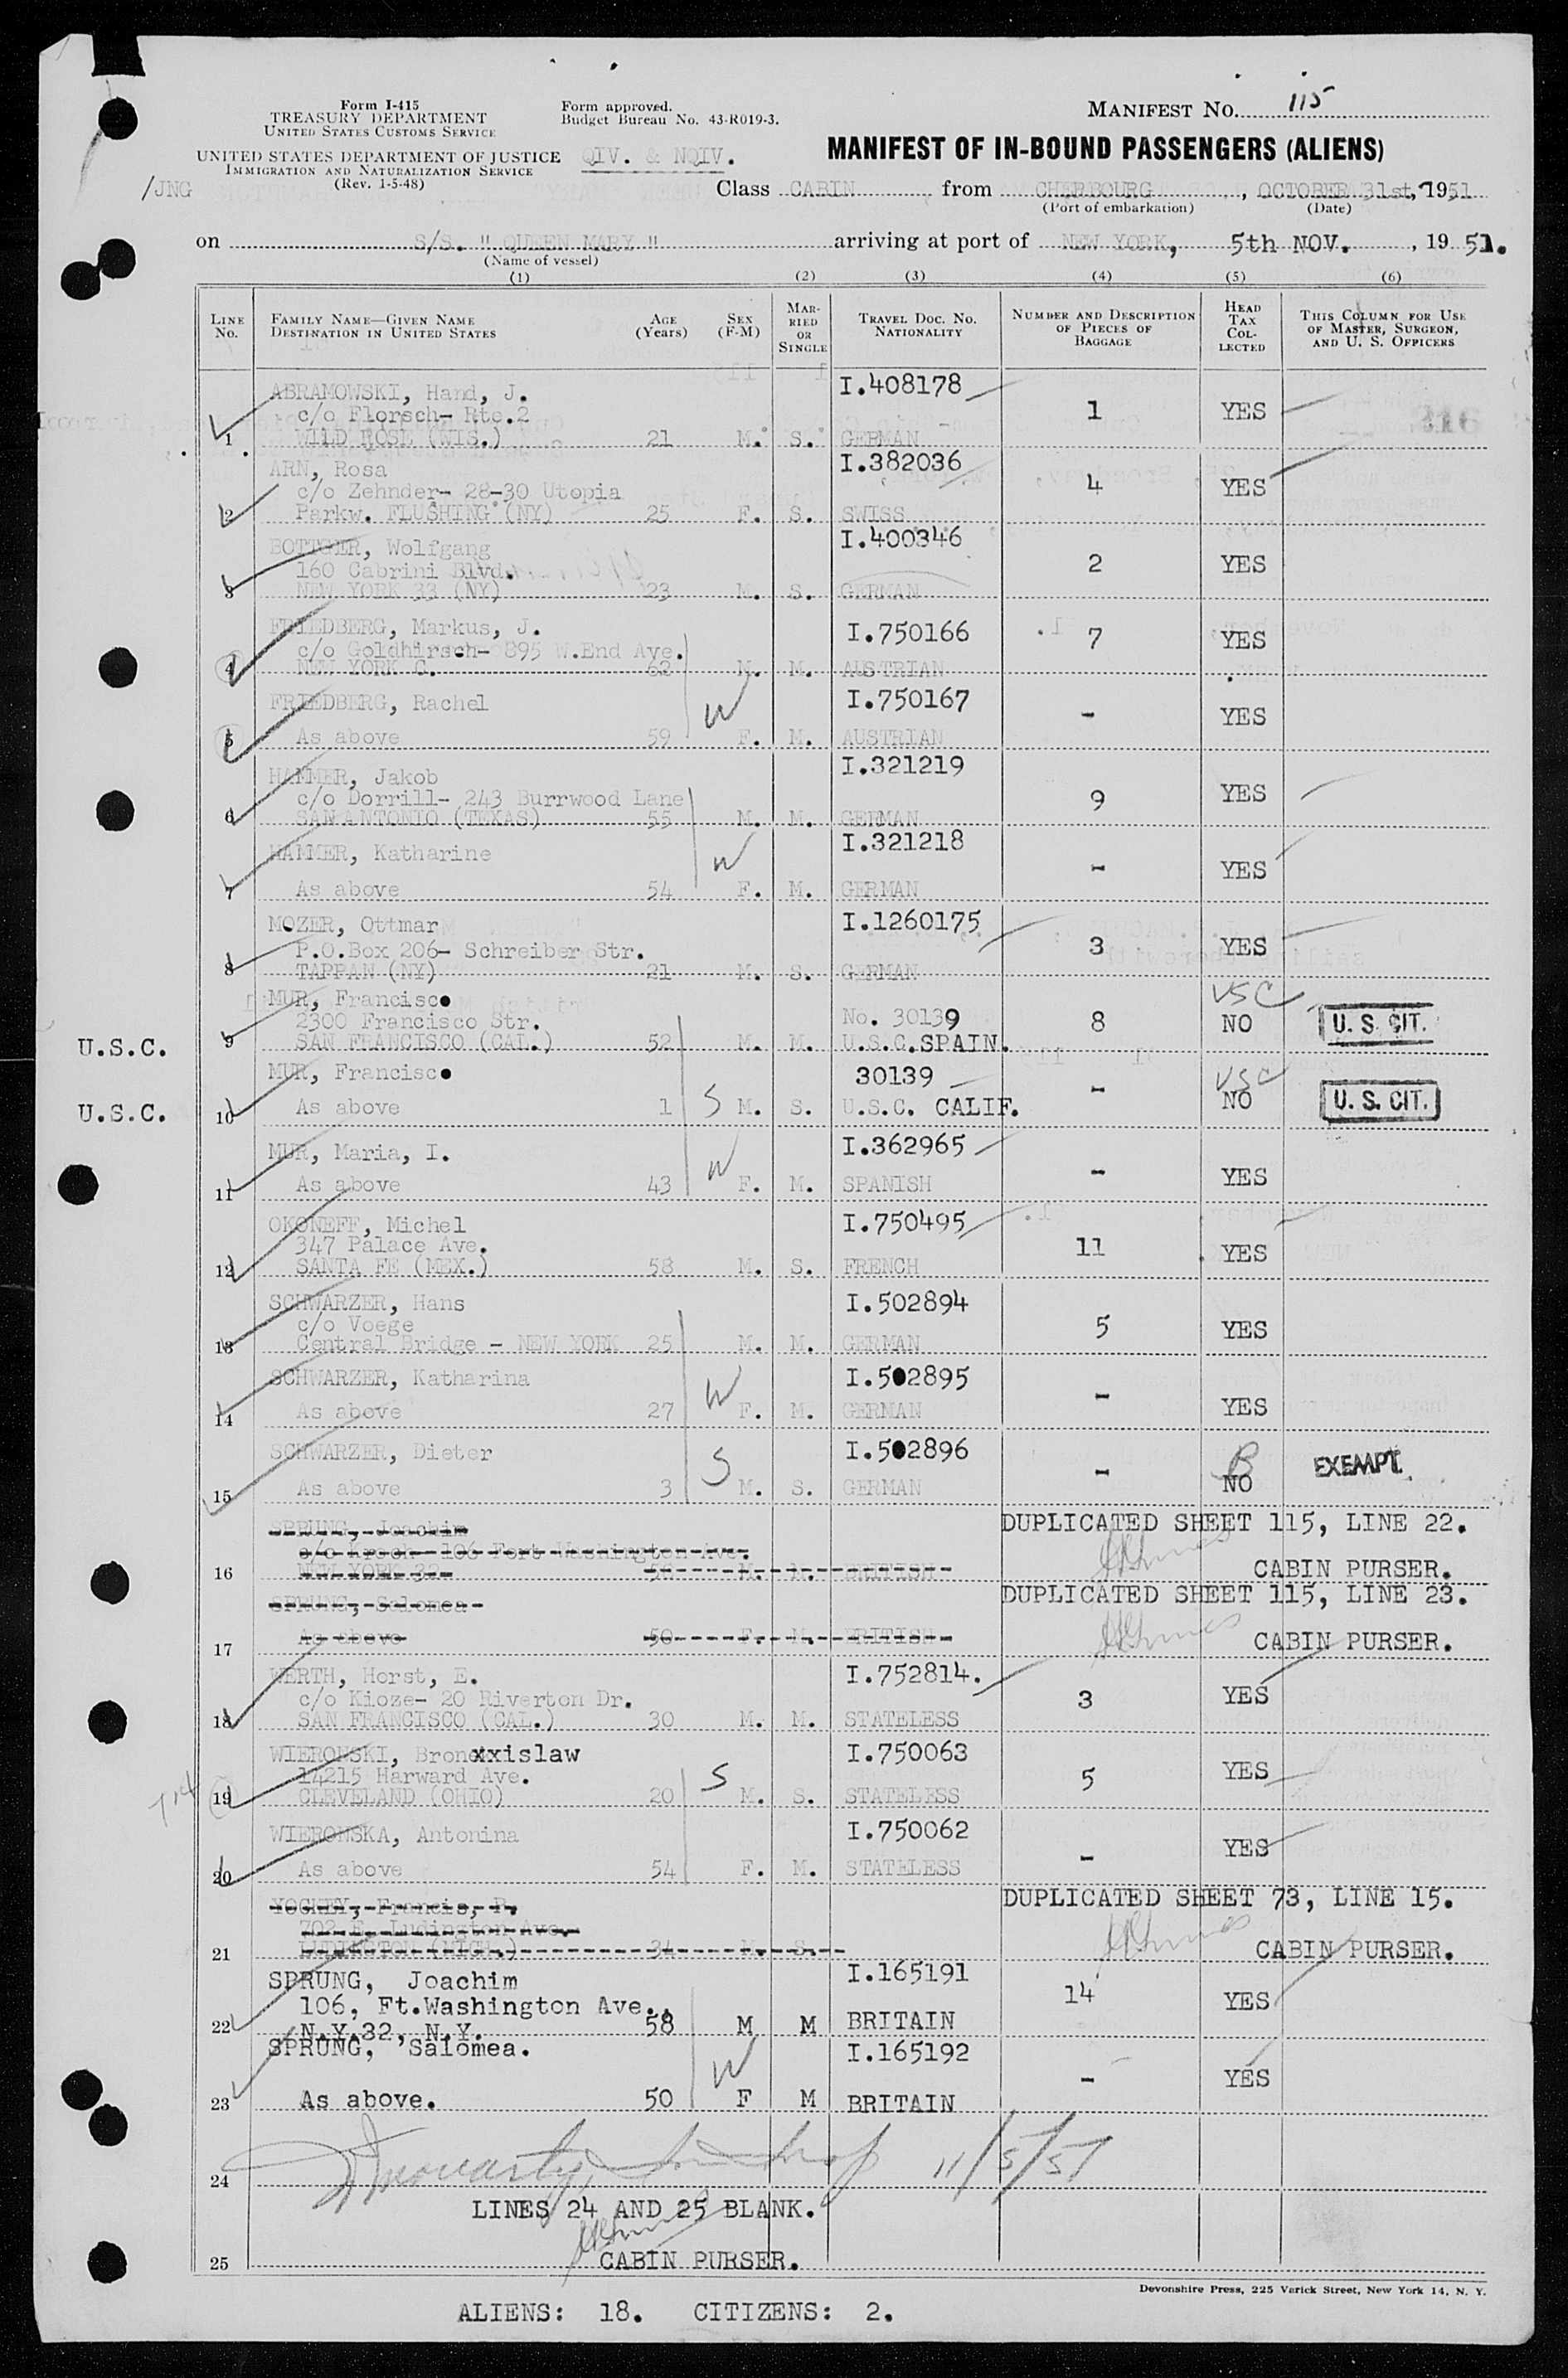 Form I-415
TREASURY DEPARTMENT
UNITED STATES CUSTOMS SERVICE
UNITED STATES DEPARTMENT OF JUSTICE
IMMIGRATION AND NATURALIZATION SERVICE
(Rev. 1-5-48)
/JNG
Form approved.
Budget Bureau No. 43-R019-3.
QIV. & NQIV.
MANIFEST NO. 115
MANIFEST OF IN-BOUND PASSENGERS (ALIENS)
Class CABIN from CHERBOURG, OCTOBER 31st, 1951
(Port of embarkation) (Date)
on S/S. "QUEEN MARY" arriving at port of NEW YORK, 5th NOV., 1951.
(Name of vessel)
(1) (2) (3) (4) (5) (6)
LINE NO. FAMILY NAME—GIVEN NAME DESTINATION IN UNITED STATES AGE (Years) SEX (F-M) MARRIED OR SINGLE TRAVEL DOC. NO. NATIONALITY NUMBER AND DESCRIPTION OF PIECES OF BAGGAGE HEAD TAX COLLECTED THIS COLUMN FOR USE OF MASTER, SURGEON, AND U. S. OFFICERS
ABRAMOWSKI, Hand, J. I.408178
c/o Florsch- Rte.2 1 YES
1 WILD ROSE (WIS.) 21 M. S. GERMAN
ARN, Rosa I.382036
c/o Zehnder- 28-30 Utopia 4 YES
2 Parkw. FLUSHING (NY) 25 F. S. SWISS
BOTTGER, Wolfgang I.400346
160 Cabrini Blvd. 2 YES
3 NEW YORK 33 (NY) 23 M. S. GERMAN
FRIEDBERG, Markus, J. I.750166 7 YES
c/o Goldhirsch- 895 W.End Ave.
4 NEW YORK C. 62 M. M. AUSTRIAN
FRIEDBERG, Rachel I.750167 - YES
5 As above 59 W F. M. AUSTRIAN
HAMMER, Jakob I.321219
c/o Dorrill- 243 Burrwood Lane 9 YES
6 SAN ANTONIO (TEXAS) 55 M. M. GERMAN
HAMMER, Katharine I.321218 - YES
7 As above 54 W F. M. GERMAN
MOZER, Ottmar I.1260175
P.O.Box 206- Schreiber Str. 3 YES
8 TAPPAN (NY) 21 M. S. GERMAN
MUR, Francisco USC
2300 Francisco Str. No. 30139 8 NO U. S. CIT.
U.S.C. 9 SAN FRANCISCO (CAL.) 52 M. M. U.S.C. SPAIN.
MUR, Francisco 30139 - USC
U.S.C. 10 As above 1 S M. S. U.S.C. CALIF. NO U. S. CIT.
MUR, Maria, I. I.362965
11 As above 43 W F. M. SPANISH - YES
OKONEFF, Michel I.750495
347 Palace Ave. 11 YES
12 SANTA FE (MEX.) 58 M. S. FRENCH
SCHWARZER, Hans I.502894
c/o Voege 5 YES
13 Central Bridge - NEW YORK 25 M. M. GERMAN
SCHWARZER, Katharina I.502895
14 As above 27 W F. M. GERMAN - YES
SCHWARZER, Dieter I.502896 EXEMPT.
15 As above 3 S M. S. GERMAN - NO
SPRUNG, Joachim DUPLICATED SHEET 115, LINE 22.
c/o Kroch- 106 Fort Washington Ave.
16 NEW YORK 32 M. M. BRITISH CABIN PURSER.
SPRUNG, Salomea DUPLICATED SHEET 115, LINE 23.
17 As above 50 F. M. BRITISH CABIN PURSER.
WERTH, Horst, E. I.752814.
c/o Kioze- 20 Riverton Dr. 3 YES
18 SAN FRANCISCO (CAL.) 30 M. M. STATELESS
WIERONSKI, Bronexxislaw I.750063
14215 Harward Ave. 5 YES
19 CLEVELAND (OHIO) 20 S M. S. STATELESS
WIERONSKA, Antonina I.750062
20 As above 54 F. M. STATELESS - YES
YOCKEY, Francis, P. DUPLICATED SHEET 73, LINE 15.
702 E. Ludington Ave.
21 LUDINGTON (MICH.) 34 M. S. CABIN PURSER.
SPRUNG, Joachim I.165191
106, Ft.Washington Ave., 14 YES
22 N.Y.32, N.Y. 58 M M BRITAIN
SPRUNG, Salomea. I.165192
23 As above. 50 W F M BRITAIN - YES
24 11/5/51
LINES 24 AND 25 BLANK.
25 CABIN PURSER.
Devonshire Press, 225 Varick Street, New York 14, N. Y.
ALIENS: 18. CITIZENS: 2.